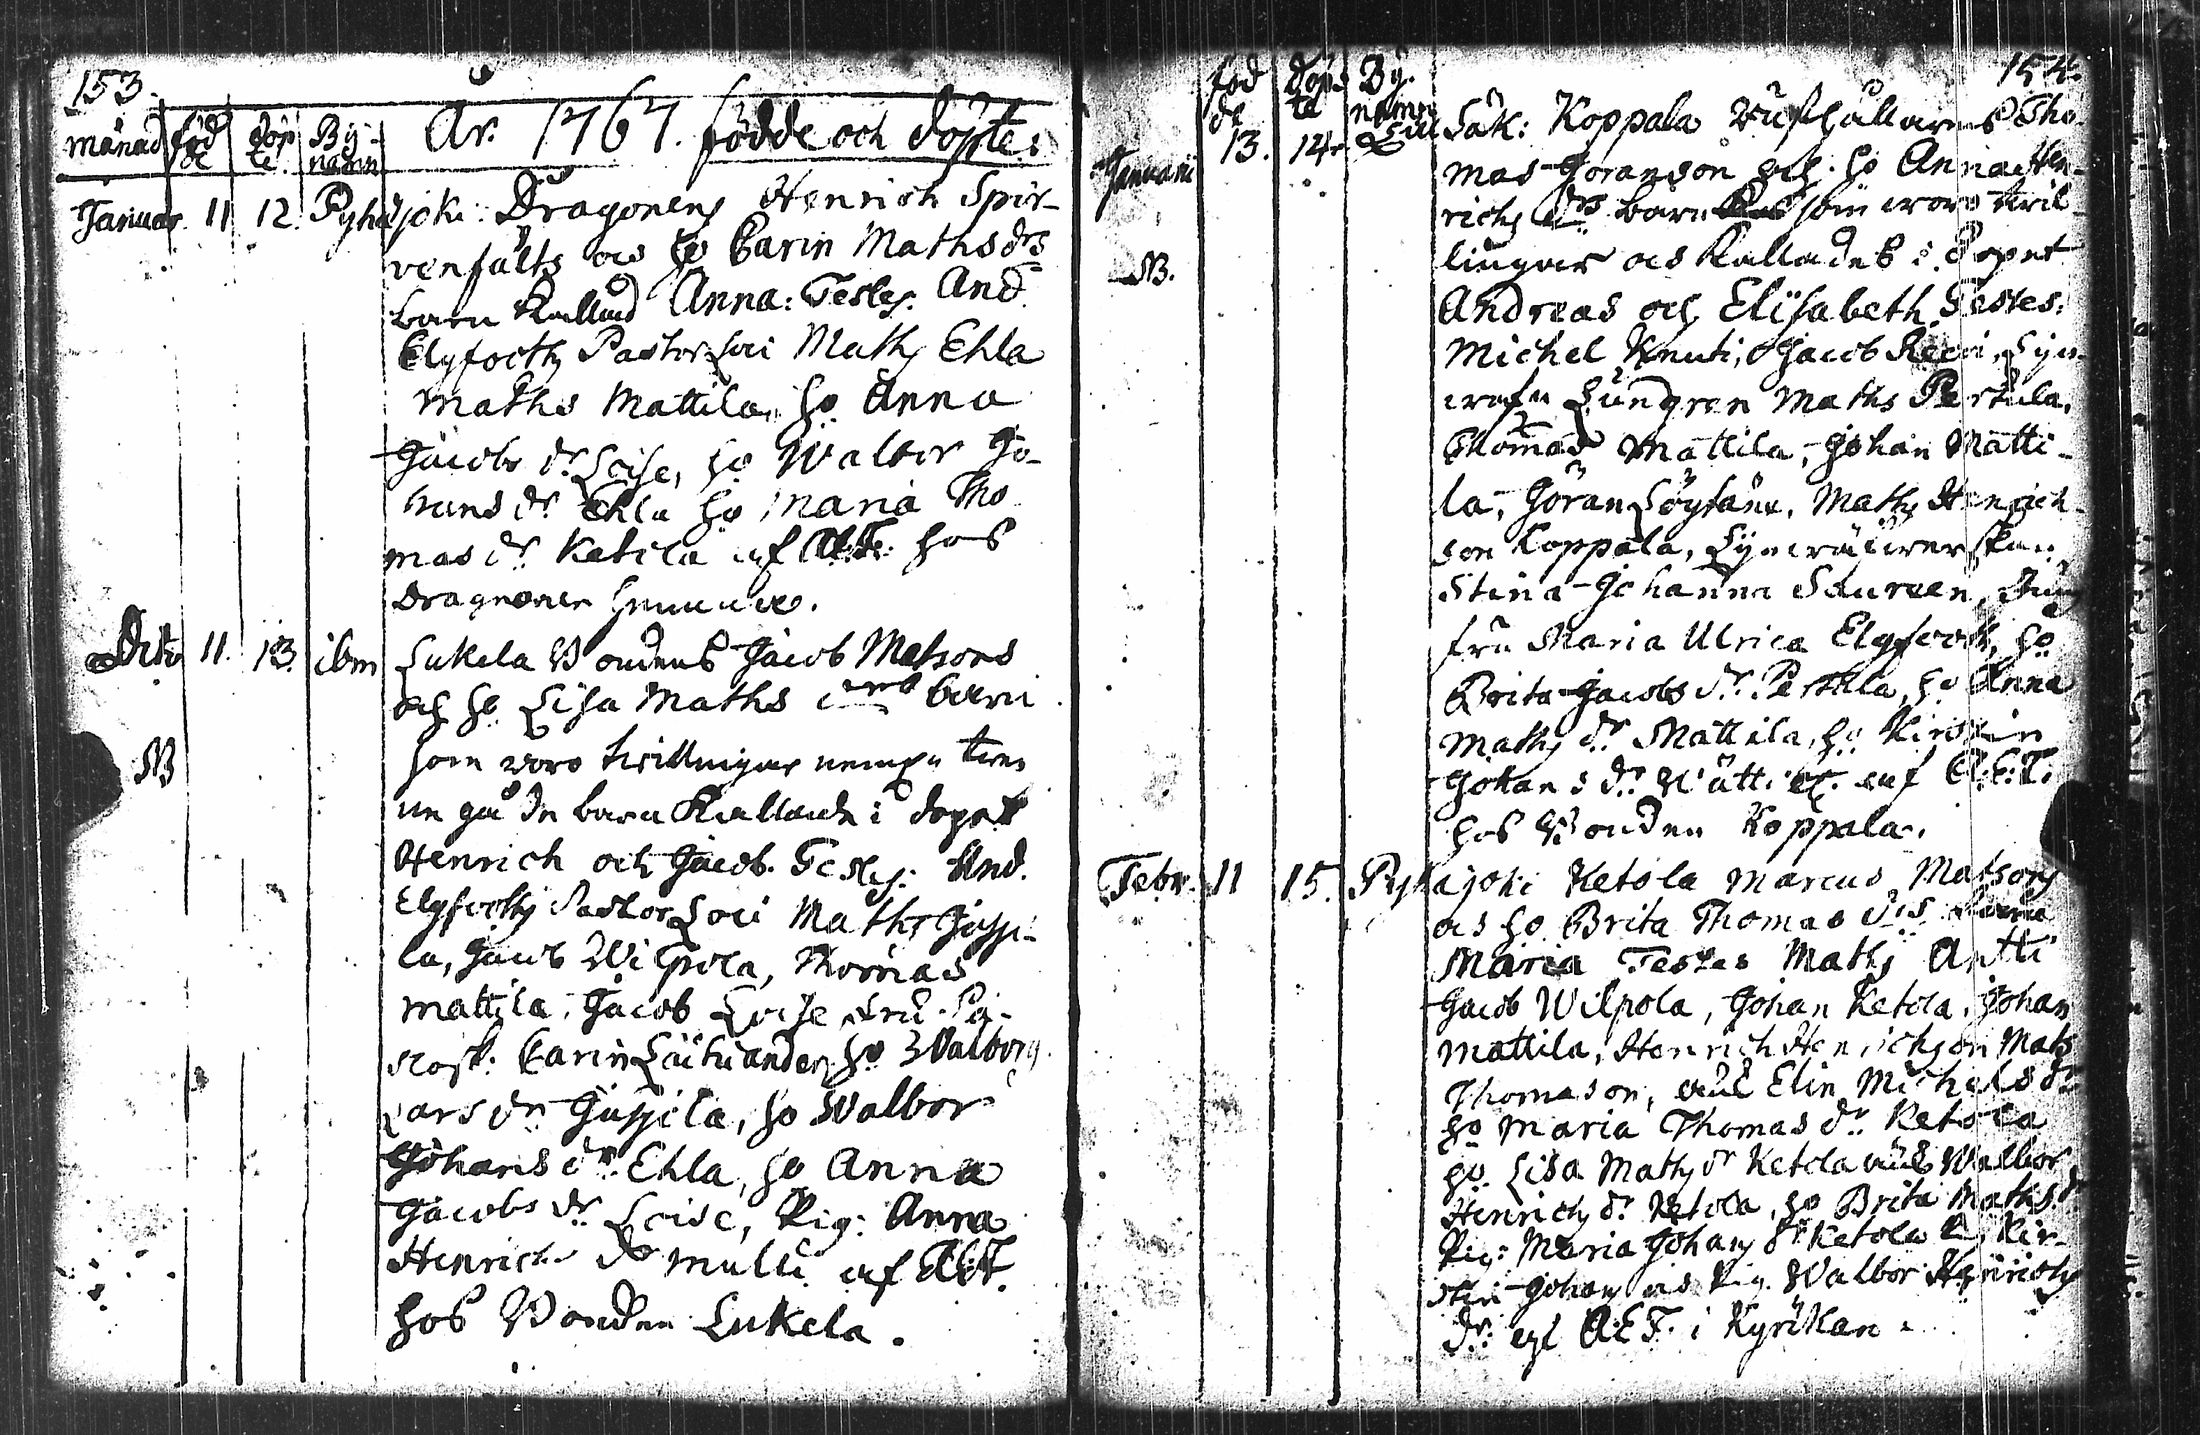 153.
månad född döp By-
de te. namn
År. 1767. födde och döpte:
Januar. 11 12. Pyhäjoki: Dragonens Henrich Spir-
venfälts och ho Carin Maths drs
barn Kallad Anna: Testes. And.
Elgfooth Pastor Loci Maths Ehla
Maths Mattila, ho Anna
Jacobs dr Loise, ho Walbor Jo-
hans dr Ehla ho Maria Tho
mas dr Ketola af A.E.F. hos
Dragonen
Dito 11. 13. ibm Lukela Bondens Jacob Matsons
och ho Lisa Maths drs barn
NB som woro twillingar
barn Kallade i dopet
Henrich och Jacob. Testes: And.
Elgfooth Pastor Loci Maths Juppi-
la, Jacob Wilpola, Thomas
Mattila, Jacob Loise, Fru
Carin ho Walborg
Lars dr Juppila, ho Walbor
Johans dr Ehla, ho Anna
Jacobs dr Loise, Pig: Anna
Henrichs dr Mulli af A.E.F.
hos Bonden Lukela.
154.
föd döp By-
de te namn
Januarii 13. 14. Sak: Koppala Tho-
mas Göranson och ho Anna Hen-
richs drs barn som woro twil-
NB. lingar och Kallades i dopet
Andreas och Elisabeth. Testes:
Michel Knuti, Jacob
Lundgren Maths Pertula,
Thomas Mattila, Johan Matti-
la, Göran Maths Henrich-
son Koppala,
Stina Johanna Jung
fru Maria Ulrica Elgfooth, ho
Brita Jacobs dr Pertula, ho Anna
Maths dr Mattila, ho Kirstin
Johans dr Wätti etc. af A.E.F.
hos Bonden Koppala.
Febr. 11 15. Pyhäjoki Ketola Marcus Matsons
och ho Brita Thomas drs
Maria Testes Maths Antti
Jacob Wilpola, Johan Ketola, Johan
Mattila, Henrich Henrichson Mats
Thomason, Elin Michels dr
ho Maria Thomas dr Ketola
ho Lisa Maths dr Ketola Walbor
Henrichs dr Ketola, ho Brita Maths dr
Pig: Maria Johans dr Ketola Kir-
stin Johans och Pig. Walbor Henrichs
dr A.E.F. i Kyrkan.